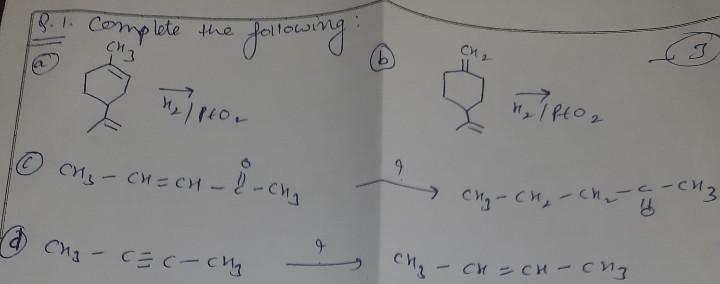 Q.1. Complete the following:
(a) CH3 → H2/PtO2
(b) CH2 → H2/PtO2
3
(c) CH3 - CH = CH - C - CH3 ? → CH3 - CH2 - CH2 - C - CH3
O O
(d) CH3 - C ≡ C - CH3 ? → CH3 - CH = CH - CH3